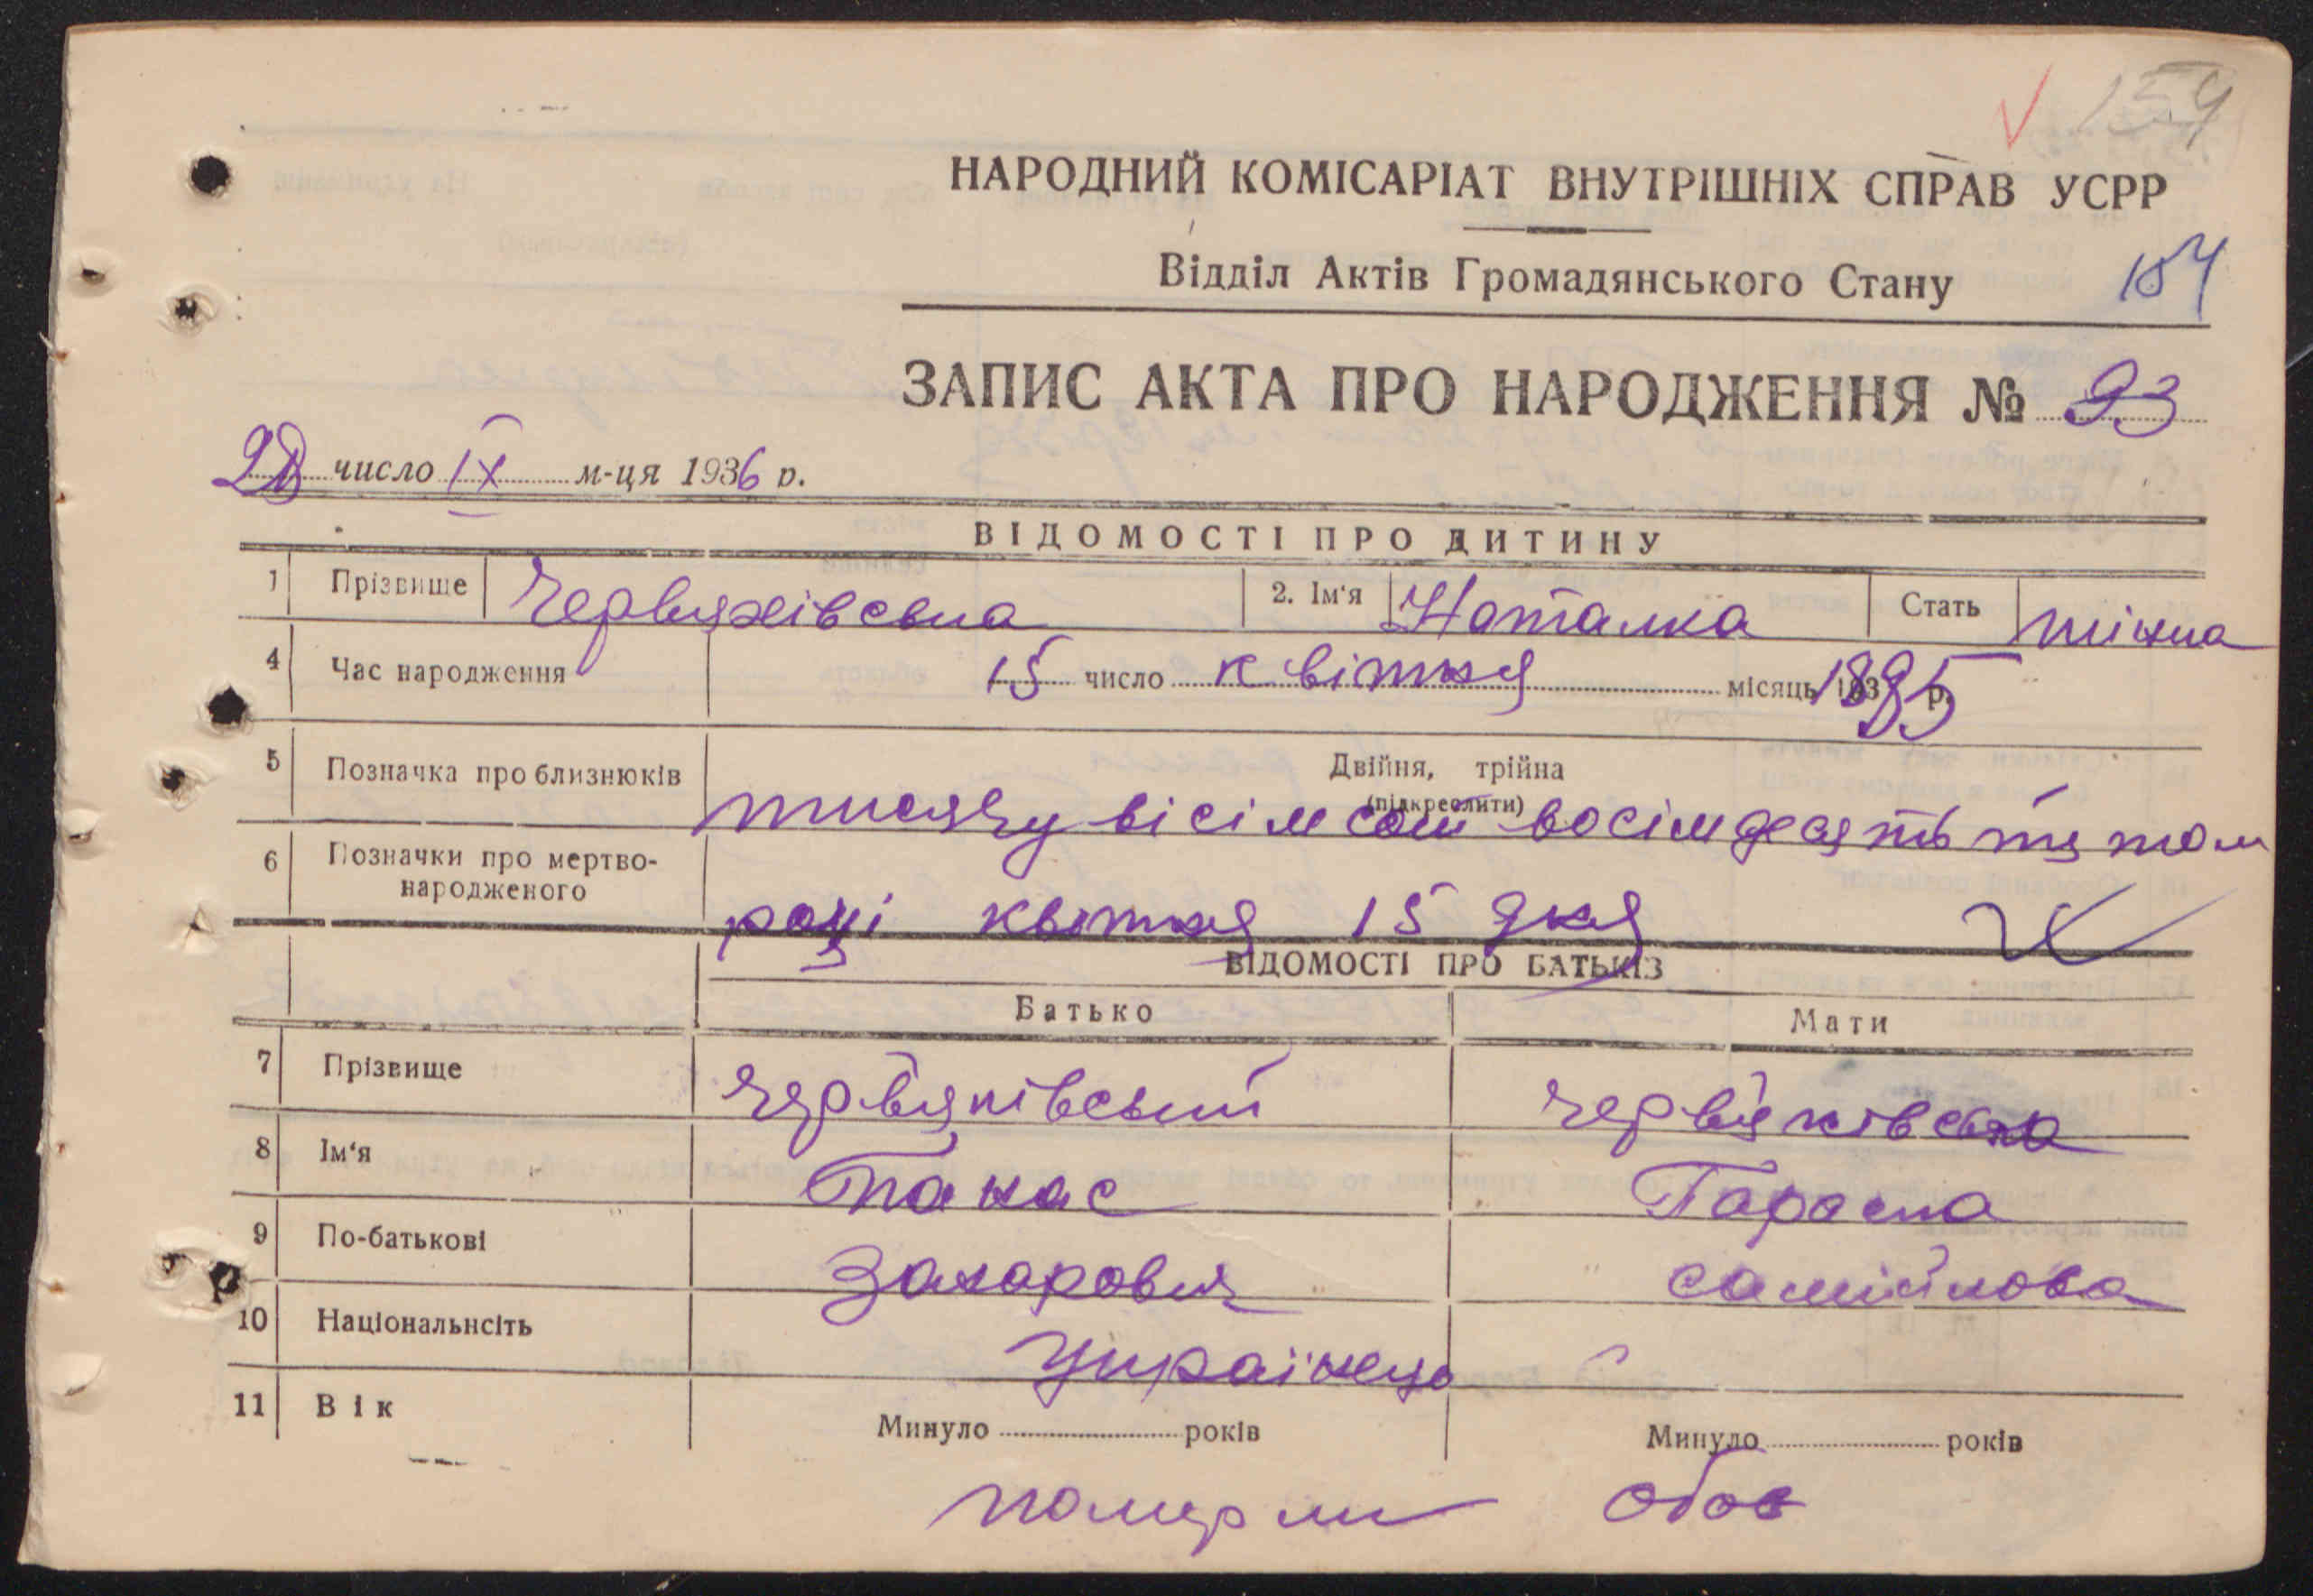 154
НАРОДНИЙ КОМІСАРІАТ ВНУТРІШНІХ СПРАВ УСРР
Відділ Актів Громадянського Стану 154
ЗАПИС АКТА ПРО НАРОДЖЕННЯ № 93
число IX м-ця 1936 р.
ВІДОМОСТІ ПРО ДИТИНУ
1 Прізвище Червяківська 2. Ім‘я Наталка Стать жіноча
4 Час народження 15 число квітня місяць 1885 р.
5 Позначка про близнюків Двійня, трійна
(підкреслити)
тисячу вісімсот восімдесять пятом
6 Позначки про мертво-
народженого
році квітня 15 дня
ВІДОМОСТІ ПРО БАТЬКІВ
Батько Мати
7 Прізвище Червяківський Червяківська
8 Ім‘я Панас Параска
9 По-батькові Захарович самійлова
10 Національнсіть Українець
11 Вік Минуло років Минуло років
померли обоє